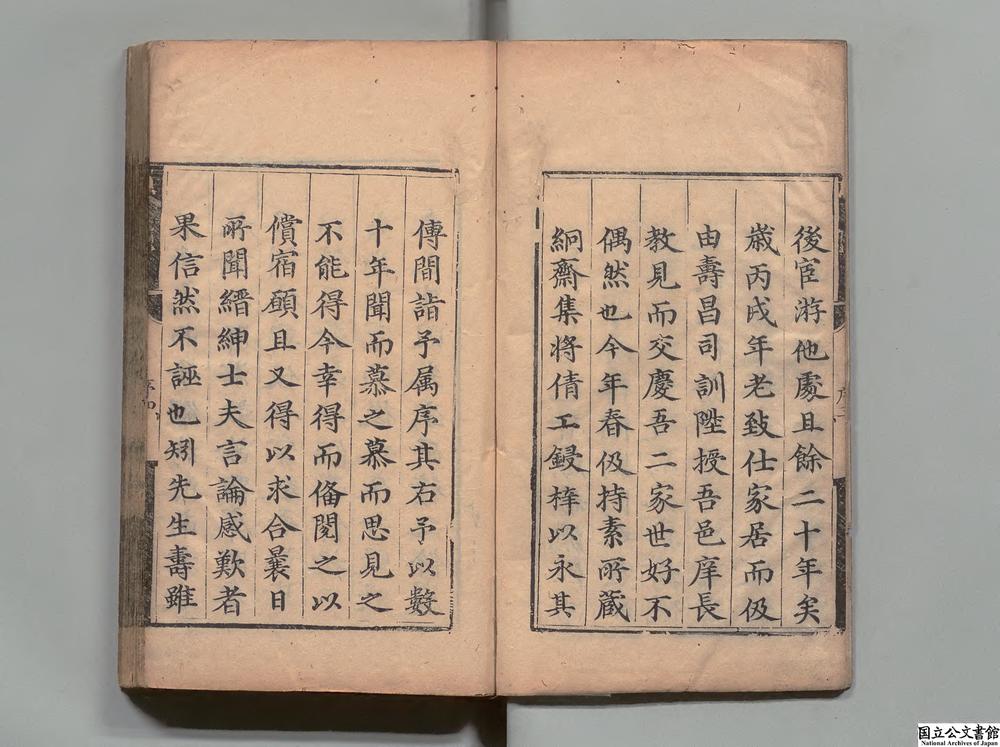 後宦游他處且餘二十年矣
歲丙戌年老致仕家居而伋
由壽昌司訓陞授吾邑庠長
教見而交慶吾二家世好不
偶然也今年春伋持素所藏
絅齋集將倩工鋟梓以永其
傳間詣予属序其右予以數
十年聞而慕之慕而思見之
不能得今幸得而俻閱之以
償宿願且又得以求合曩日
所聞縉紳士夫言論感歎者
果信然不誣也矧先生壽雖
国立公文書館
National Archives of Japan